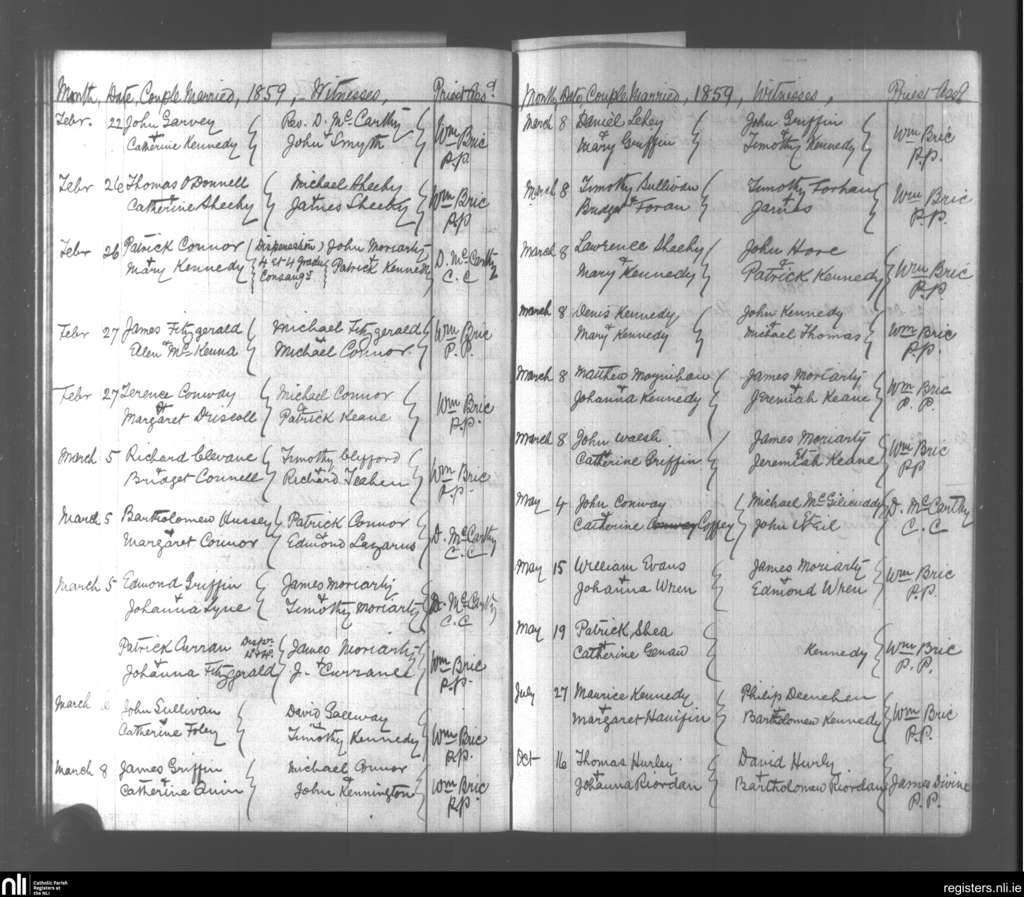 Month, Date, Couple Married, 1859, Witnesses, Priest Assd
Febr. 22 John Garvey Rev. D. McCarthy Wm Bric
+ Catherine Kennedy John + Smyth P.P.
Febr 26 Thomas O'Donnell Michael Sheehy Wm Bric
Catherine + Sheehy James Sheehy P.P.
Febr 26 Patrick Connor Dispensation John Moriarty D. McCarthy
+ Mary Kennedy 4 et 4 gradu Patrick + Kennedy C.C
Consang's
Febr 27 James Fitzgerald Michael Fitzgerald Wm Bric
+ McKenna Michael + Connor P.P.
Febr 27 Terence Conway Michael Connor Wm Bric
et Margaret Driscoll & Patrick Keane P.P.
March 5 Richard Clevane Timothy Clifford Wm Bric
+ Bridget Connell + Richard Teahen P.P.
March 5 Bartholomew Hussey Patrick Connor D. McCarthy
+ Margaret Connor + Edmond Lazarus C.C
March 5 Edmond Griffin James Moriarty D. McCarthy
+ Johanna Lyne + Timothy Moriarty C.C
Patrick Curran James Moriarty Wm Bric
+ Johanna Fitzgerald J. + Currane P.P.
March John Sullivan David Galeway Wm Bric
+ Catherine Foley + Timothy Kennedy P.P.
March 8 James Griffin Michael Connor Wm Bric
+ Catherine Quinn + John Kennington P.P.
Month, Date, Couple Married, 1859, Witnesses, Priest Assd
March 8 Daniel Lehey John Griffin Wm Bric
& Mary Griffin + Timothy Kennedy P.P.
March 8 Timothy Sullivan Timothy Forhan Wm Bric
Bridget + Foran + James P.P.
March 8 Lawrence Sheehy John Hore Wm Bric
Mary + Kennedy & Patrick Kennedy P.P.
March 8 Denis Kennedy John Kennedy Wm Bric
+ Mary Kennedy + Michael Thomas P.P.
March 8 Matthew Moynihan James Moriarty Wm Bric
+ Johanna Kennedy + Jeremiah Keane P.P.
March 8 John Walsh James Moriarty Wm Bric
+ Catherine Griffin Et Jeremiah Keane P.P
May 4 John Conway Michael McGilicuddy D. McCarthy
+ Catherine Conway Coffey Et John Neil C.C
May 15 William Evans James Moriarty Wm Bric
+ Johanna Wren + Edmond Wren P.P.
May 19 Patrick Shea Wm Bric
+ Catherine Genaw Kennedy P.P.
July 27 Maurice Kennedy Philip Deenehen Wm Bric
+ Margaret Hanifin + Bartholomew Kennedy P.P.
Oct 16 Thomas Hurley David Hurly James Divine
+ Johanna Riordan + Bartholomew Riordan P.P.
nli Catholic Parish
Registers at
the NLI
registers.nli.ie